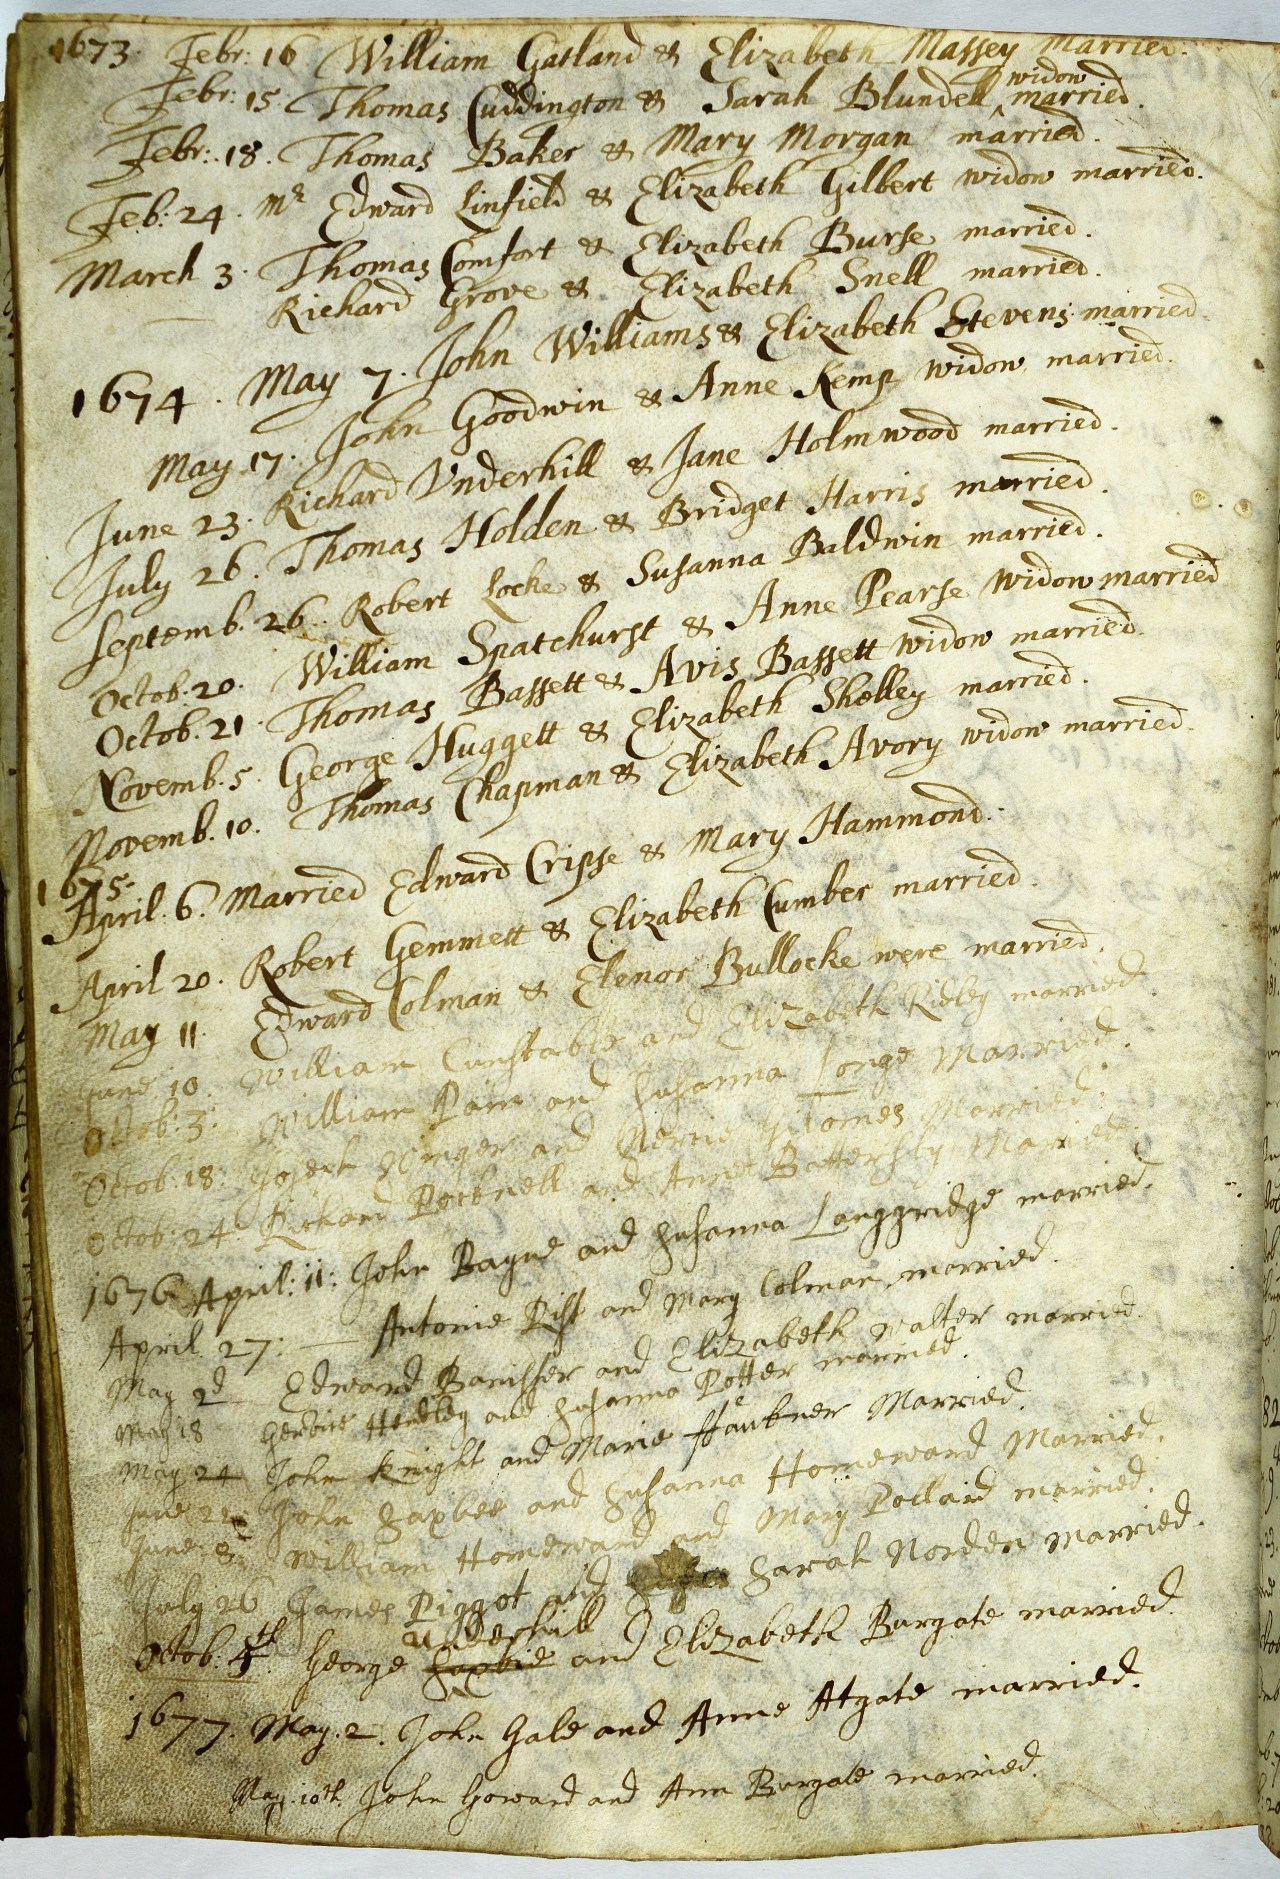 1673. Febr: 16 William Gatland & Elizabeth Massey Married.
Febr: 15. Thomas Cuddington & Sarah Blundell widow married.
Febr: 18. Thomas Baker & Mary Morgan married.
Feb: 24. Mr Edward Linfield & Elizabeth Gilbert widow married.
March 3. Thomas Comfort & Elizabeth Burse married.
Richard Grove & Elizabeth Snell married.
1674. May 7. John Williams & Elizabeth Stevens married
May 17. John Goodwin & Anne Kemp widow married.
June 23. Richard Underhill & Jane Holmwood married.
July 26. Thomas Holden & Bridget Harris married.
Septemb. 26. Robert Locke & Susanna Baldwin married.
Octob. 20. William Spatchurst & Anne Pearse widow married
Octob. 21. Thomas Bassett & Avis Bassett widow married.
Novemb. 5. George Huggett & Elizabeth Shelley married.
Novemb. 10. Thomas Chapman & Elizabeth Avory widow married.
1675.
April. 6. Married Edward Cripse & Mary Hammond.
April 20. Robert Gemmett & Elizabeth Cumber married.
May 11. Edward Colman & Elenor Bullocke were married.
June 10. William Cunstable and Elizabeth Ridley married.
Octob: 3: William Pain and Susanna Longe Married.
Octob: 18: and Married.
Octob: 24: Richard Pocknell and Anne Married.
1676 April: 11: John Bayne and Susanna Langgridge married.
April. 27: Antonie Rist and Mary Colman married.
May 2d Edward Banister and Elizabeth walter married.
May 18 and Susanna Potter married.
May 24 John Knight and Marie ffaukner Married.
June 22 John Saxbee and Susanna Homeward Married.
June William Homeward and Mary Pollard married.
July 26 James Piggot and Sarah Norden married.
Octob. 5th. George Underhill and Elizabeth Burgate married.
1677. May. 2. John Gale and Anne Atgate married.
May. 10th. John Howard and Ann Burgate married.